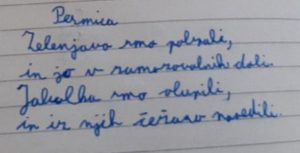 Pesmica
Zelenjavo smo pobrali,
in jo v samozovalnik dali.
Jabolka smo olupili,
in iz njih čežano naredili.